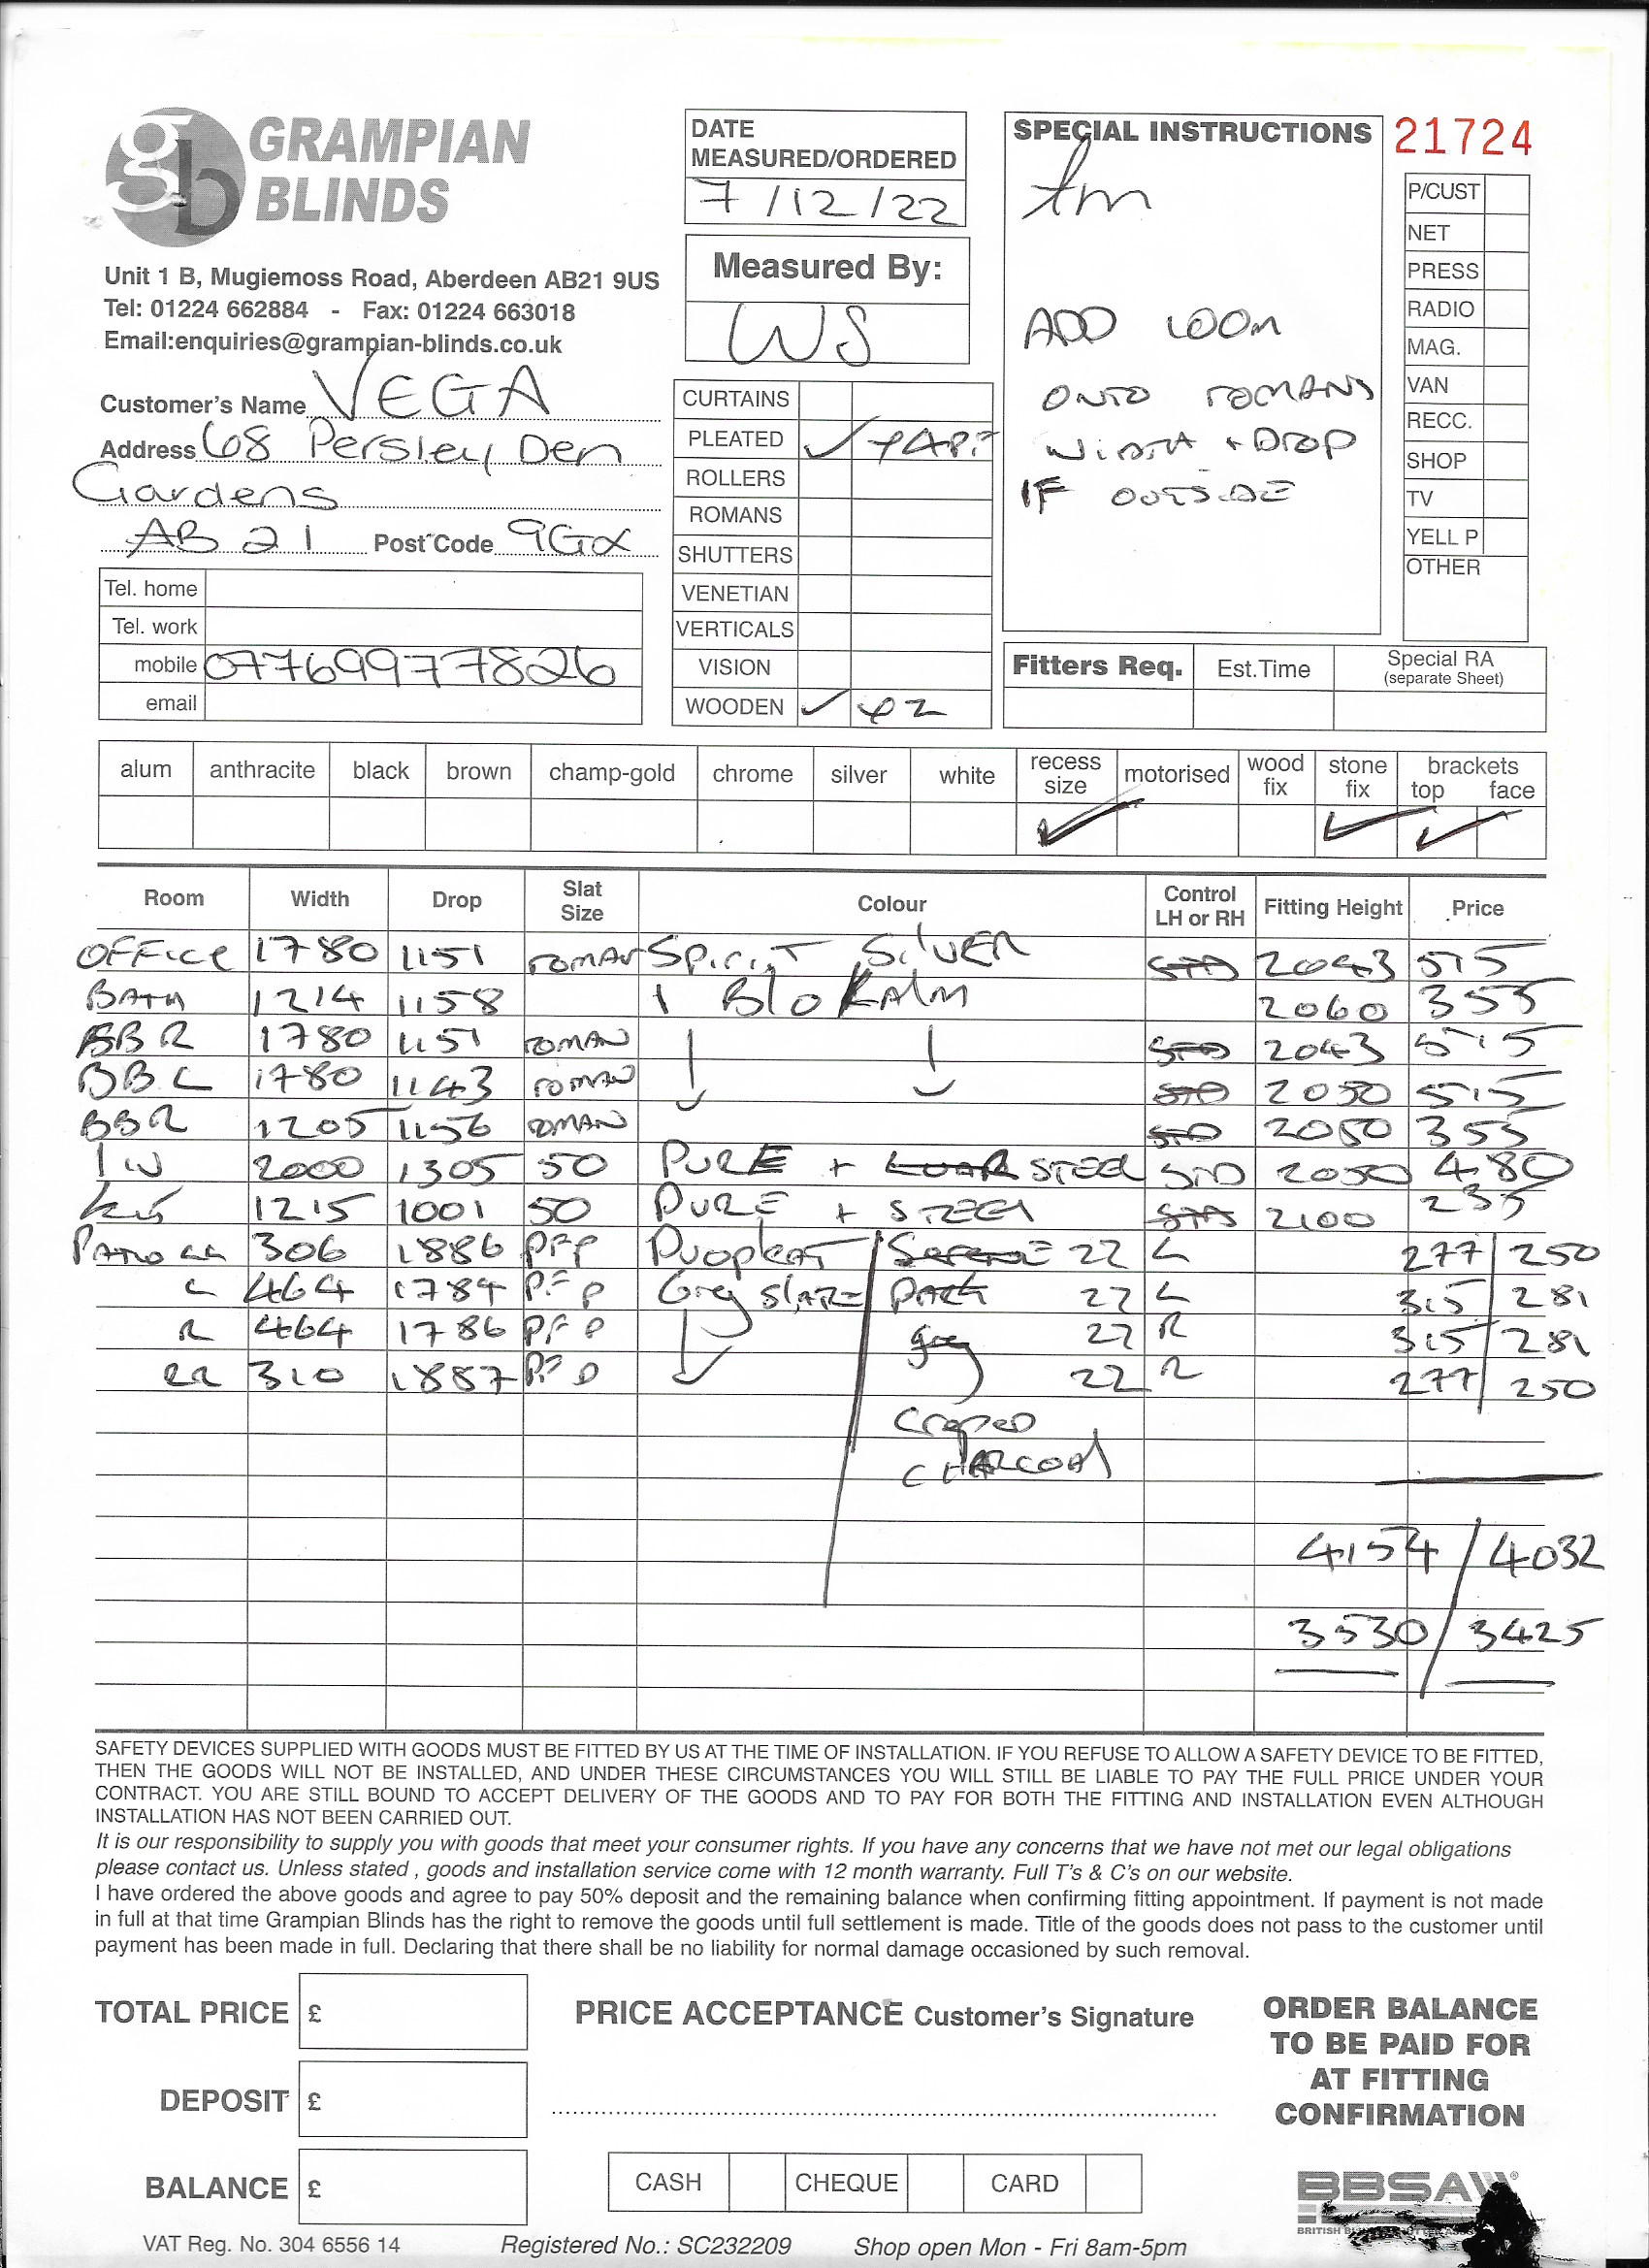 GRAMPIAN
BLINDS
Unit 1 B, Mugiemoss Road, Aberdeen AB21 9US
Tel: 01224 662884 - Fax: 01224 663018
Email:enquiries@grampian-blinds.co.uk
Customer's Name VEGA
Address 68 Persley Den
Gardens
AB21 Post Code 9GX
Tel. home
Tel. work
mobile 07769977826
email
DATE
MEASURED/ORDERED
7/12/22
Measured By:
WS
CURTAINS
PLEATED ✓
ROLLERS
ROMANS
SHUTTERS
VENETIAN
VERTICALS
VISION
WOODEN ✓
SPECIAL INSTRUCTIONS
ADD 100m
ONTO ROMANS
WIDTH + DROP
IF OUTSIDE
21724
P/CUST
NET
PRESS
RADIO
MAG.
VAN
RECC.
SHOP
TV
YELL P
OTHER
Fitters Req. Est.Time Special RA
(separate Sheet)
alum anthracite black brown champ-gold chrome silver white recess size motorised wood fix stone fix brackets top face
✓ ✓ ✓
Room Width Drop Slat Size Colour Control LH or RH Fitting Height Price
OFFICE 1780 1151 ROMAN Spirit SILVER STD 2043 515
BATH 1214 1158 2060 355
BBR 1780 1151 ROMAN STD 2043 515
BBL 1780 1143 ROMAN STD 2050 515
BBR 1205 1156 ROMAN STD 2050 355
2000 1305 50 PURE + STEEL STD 2050 480
Kit 1215 1001 50 PURE + STEEL STD 2100 235
PATIO LL 306 1886 PFP Duopleat 22 L 277 250
L 464 1784 PFP Grey SLATE 22 L 315 281
R 464 1786 PFP 22 R 315 281
RR 310 1887 PFP 22 R 277 250
CHARCOAL
4154 / 4032
3530 / 3425
SAFETY DEVICES SUPPLIED WITH GOODS MUST BE FITTED BY US AT THE TIME OF INSTALLATION. IF YOU REFUSE TO ALLOW A SAFETY DEVICE TO BE FITTED,
THEN THE GOODS WILL NOT BE INSTALLED, AND UNDER THESE CIRCUMSTANCES YOU WILL STILL BE LIABLE TO PAY THE FULL PRICE UNDER YOUR
CONTRACT. YOU ARE STILL BOUND TO ACCEPT DELIVERY OF THE GOODS AND TO PAY FOR BOTH THE FITTING AND INSTALLATION EVEN ALTHOUGH
INSTALLATION HAS NOT BEEN CARRIED OUT.
It is our responsibility to supply you with goods that meet your consumer rights. If you have any concerns that we have not met our legal obligations
please contact us. Unless stated , goods and installation service come with 12 month warranty. Full T's & C's on our website.
I have ordered the above goods and agree to pay 50% deposit and the remaining balance when confirming fitting appointment. If payment is not made
in full at that time Grampian Blinds has the right to remove the goods until full settlement is made. Title of the goods does not pass to the customer until
payment has been made in full. Declaring that there shall be no liability for normal damage occasioned by such removal.
TOTAL PRICE £
DEPOSIT £
BALANCE £
PRICE ACCEPTANCE Customer's Signature
CASH CHEQUE CARD
ORDER BALANCE
TO BE PAID FOR
AT FITTING
CONFIRMATION
BBSA
VAT Reg. No. 304 6556 14 Registered No.: SC232209 Shop open Mon - Fri 8am-5pm